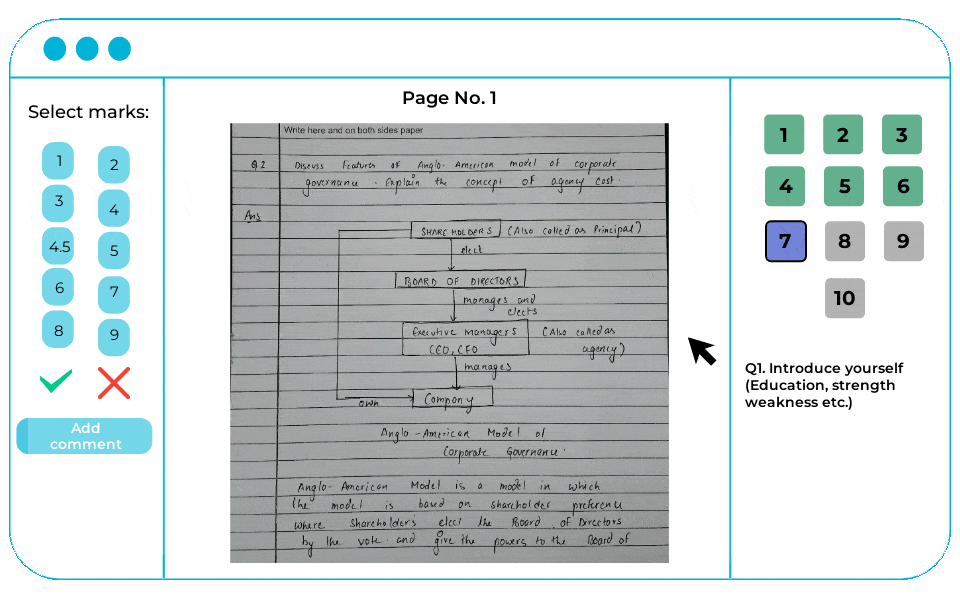 Select marks:
1
2
3
4
4.5
5
6
7
8
9
Add
comment
Page No. 1
Write here and on both sides paper
Q.2 Discuss Features of Anglo-American model of corporate
governance. Explain the concept of agency cost.
Ans
SHARE HOLDERS (Also called as Principal)
elect
BOARD OF DIRECTORS
manages and
elects
Executive managers (Also called as
CEO, CFO agency)
manages
own Company
Anglo-American Model of
Corporate Governance.
Anglo-American Model is a model in which
the model is based on shareholder preference
where shareholders elect the Board of Directors
by the vote and give the powers to the Board of
1 2 3
4 5 6
7 8 9
10
Q1. Introduce yourself
(Education, strength
weakness etc.)